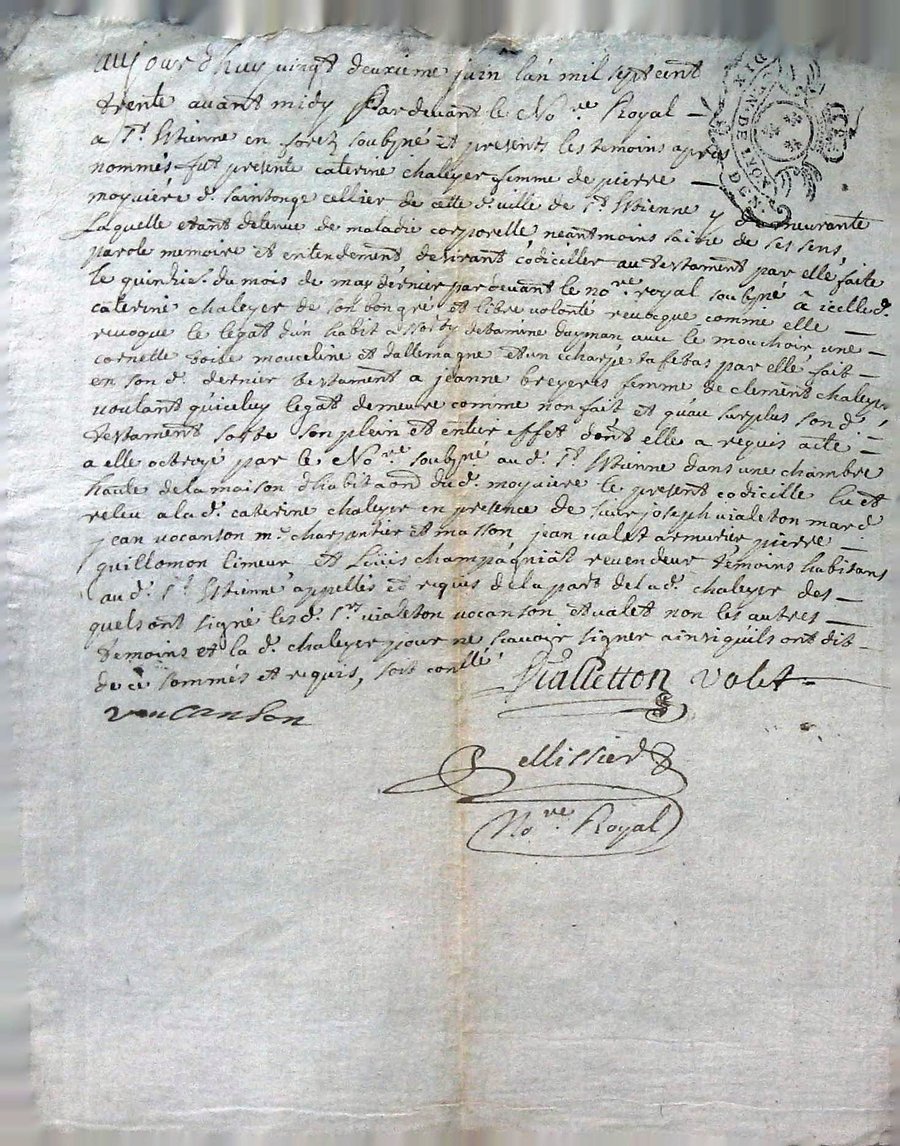 aujourdhuy vingt deuxieme juin lan mil sept cent
trente avant midy Pardevant le No.re Royal
a St. Etienne en forez soubzné et presents les temoins apres
nommés fut presente caterine chaleyer femme de pierre
moyuiére d. saintonge cellier de cette d. ville de St. Etienne y demeurante
Laquelle etant detenue de maladie corporelle néantmoins saine de ses sens,
parole memoire et entendement desirant codiciller au testament par elle faite
le quinzie. du mois de may dérnier pardevant le no.re royal soubzné à icelle d.
caterine chaleyer de son bongré et libre volonté revocque comme elle
revoque le légat d'un habit assorty detamine duyman avec le mouchoir une
cornette toile mouceline et dallemagne et un echarpe tafetas par elle fait
en son d. dernier testament a jéanne breyeres femme de clement chaleyer
voulant quiceluy légat demeure comme non fait et quau surplus son d.
testament sorte son plein et entier effet dont elle a requis acte
a elle octroyé par le No.re soubzné au d. St. Etienne dans une chambre
haute de la maison dhabitaon du d. moyuiere le present codicille lu et
releu a la d. caterine chaleyer en presence de sieur joseph vialeton marc.d
jean vocanson m.e charpentier et masson jean valet armurier pierre
guillomon limeur et Louis champagniat revendeur témoins habitans
au d. St. Etienne appellés et requis de la part de la d. chaleyer des
quels ont signé les d. Srs. vialeton vocanson et valet non les autres
temoins et la d. chaleyer pour ne scavoir signer ainsi quils ont dit
de cè sommés et requis, soit conllé
Vialletton valet
vaucanson
Pellissier
No.re Royal
DIX DEN DE LION